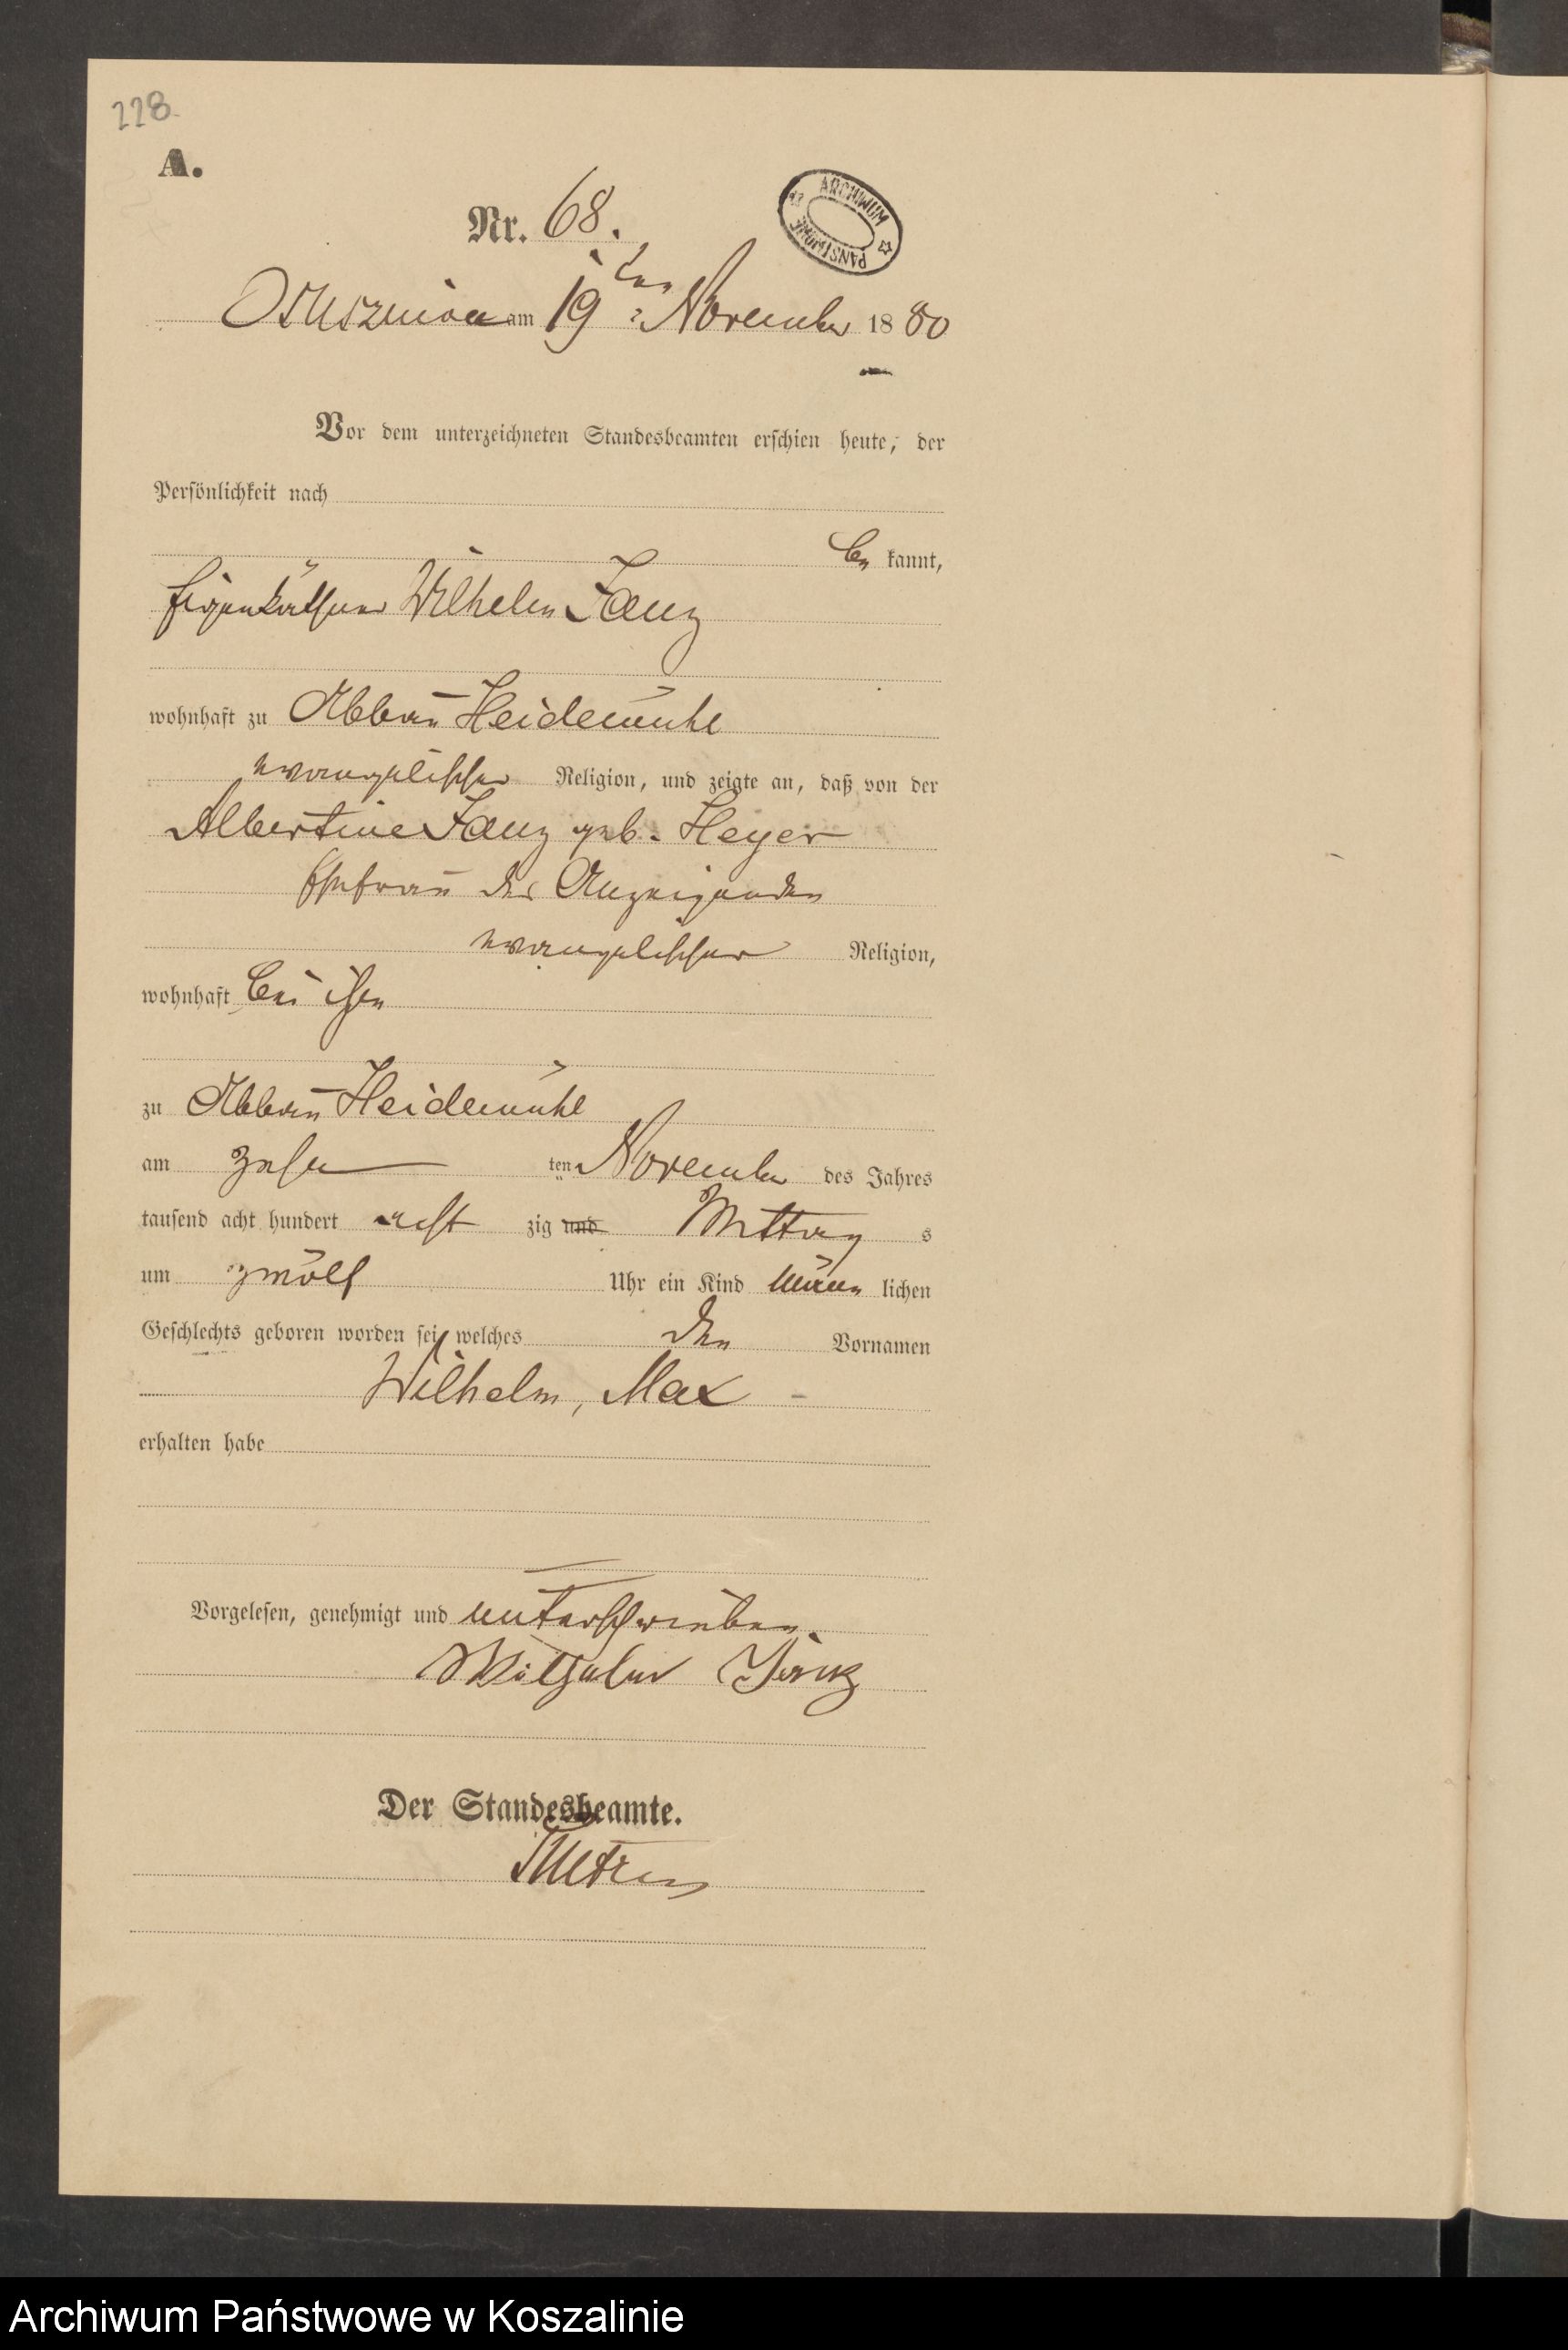 228.
A.
Nr. 68.
ARCHIWUM PAŃSTWOWE
am 19ten November 1880
Vor dem unterzeichneten Standesbeamten erschien heute, der
Persönlichkeit nach
be kannt,
Eigenkäthner Wilhelm
wohnhaft zu Abbau Heidemühl
evangelischer Religion, und zeigte an, daß von der
Albertine geb. Heyer
Ehefrau des Anzeigenden
evangelischer Religion,
wohnhaft bei ihm
zu Abbau Heidemühl
am zehn ten November des Jahres
tausend acht hundert acht zig und Mittag s
um zwölf Uhr ein Kind männ lichen
Geschlechts geboren worden sei, welches den Vornamen
Wilhelm, Max
erhalten habe
Vorgelesen, genehmigt und unterschrieben.
Wilhelm
Der Standesbeamte.
Archiwum Państwowe w Koszalinie